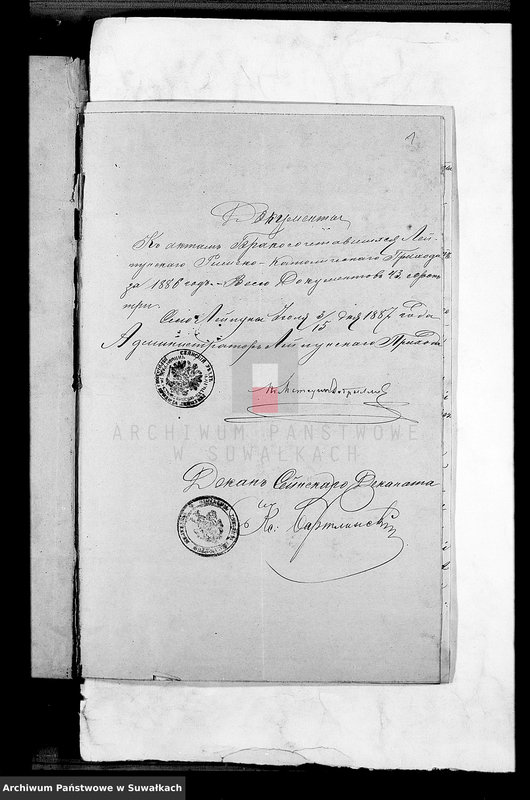 1
Документы
Къ актамъ Бракосочетавшихся Лей-
пунскаго Римско-Католическаго Прихода
за 1886 годъ. – Всего Документовъ 43. сорокъ
три.
Село Лейпуны 3/15 дня 1887 года
Администраторъ Лейпунскаго Прихода
ARCHIWUM PAŃSTWOWE
W SUWAŁKACH
Деканъ Сейнскаго Деканата
Кс:
Archiwum Państwowe w Suwałkach